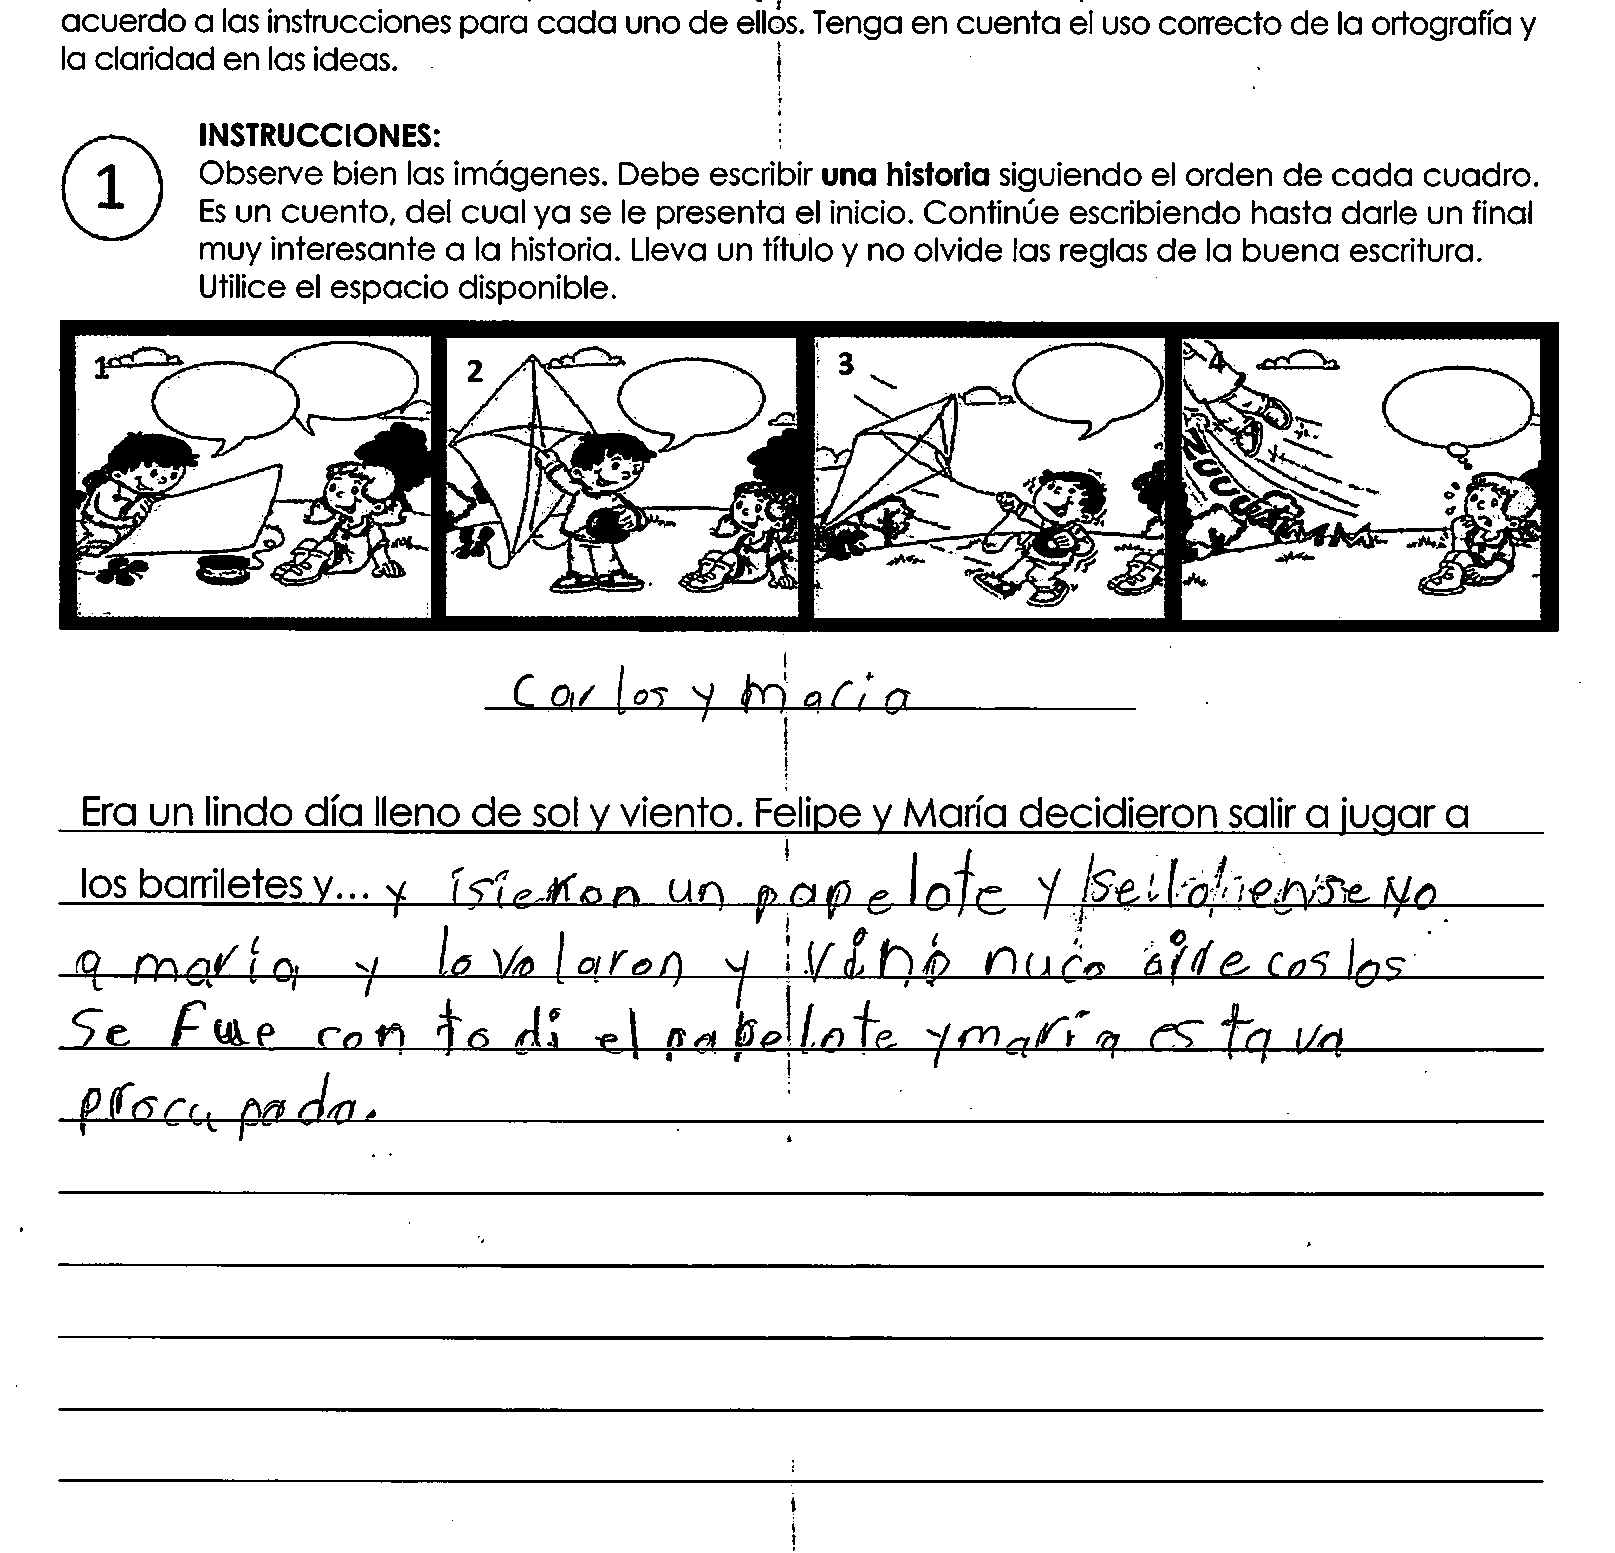 acuerdo a las instrucciones para cada uno de ellos. Tenga en cuenta el uso correcto de la ortografía y
la claridad en las ideas.
INSTRUCCIONES:
1
Observe bien las imágenes. Debe escribir una historia siguiendo el orden de cada cuadro.
Es un cuento, del cual ya se le presenta el inicio. Continúe escribiendo hasta darle un final
muy interesante a la historia. Lleva un título y no olvide las reglas de la buena escritura.
Utilice el espacio disponible.
1 2 3 4
Carlos y maria
Era un lindo día lleno de sol y viento. Felipe y María decidieron salir a jugar a
los barriletes y... y isieron un papelote y
a maría y lo volaron y vino nuco aire coslos
se fue con to di el papelote y maría estava
procupada.